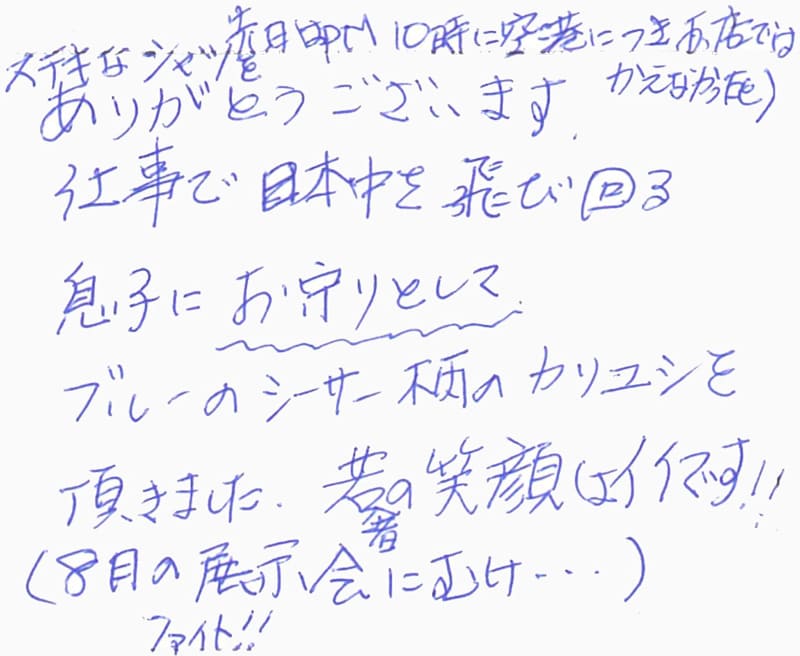 先日PM10時に空港につきお店では
かえなかった
ステキなシャツを
ありがとうございます.
仕事で日本中を飛び回る
息子にお守りとして.
ブルーのシーサー柄のカリユシを
頂きました. 若者の笑顔はイイです!!
(8月の展示会にむけ・・・)
ファイト!!